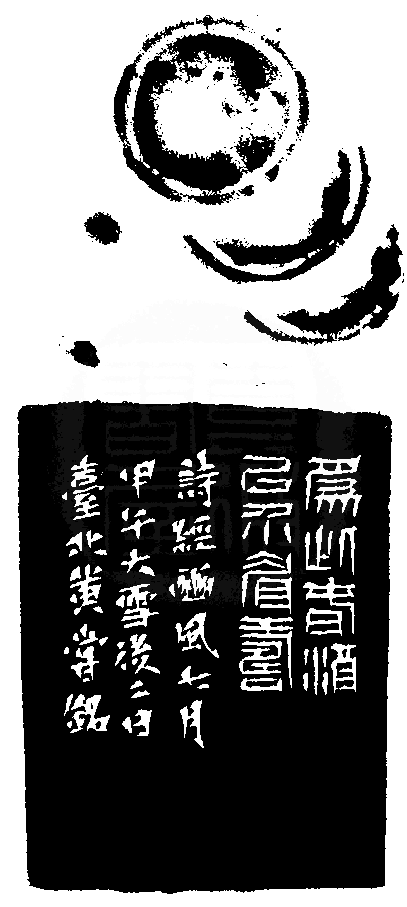 為此春酒
以介眉壽
詩經豳風七月
甲午大雪後二日
臺北黃嘗銘